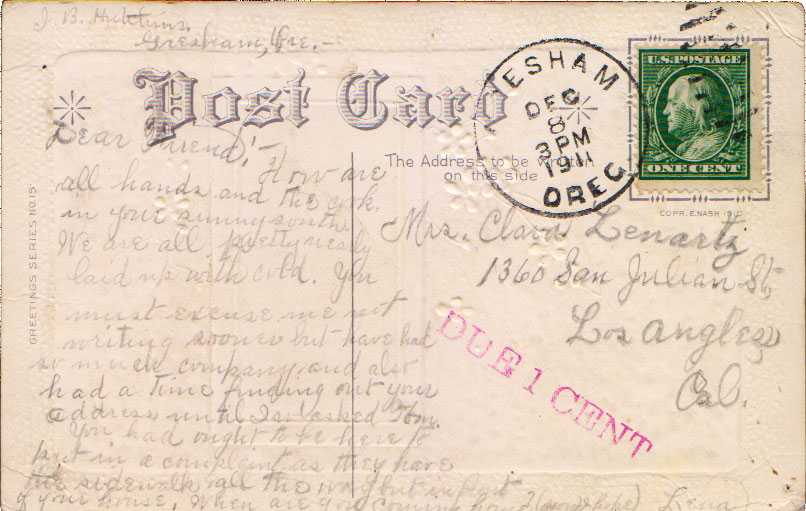 J. B. Hub
Gresham, Ore. -
Post Card
GRESHAM
DEC
8
3 PM
1911
OREG.
U.S. POSTAGE
ONE CENT
COPR. E. NASH 1910
GREETINGS SERIES NO. 15
The Address to be written
on this side
Dear Friend! -
How are
all hands and the cook
in your sunny south.
We are all pretty nearly
laid up with cold. You
must excuse me not
writing sooner but have had
so much company and also
had a time finding out your
address until I asked Tom.
You had ought to be here to
put in a complaint as they have
the sidewalk all the way but in front
of your house. When are you coming home? (soon I hope) Lena
Mrs. Clara Lenartz
1360 San Julian St,
Los Angles,
Cal.
DUE 1 CENT